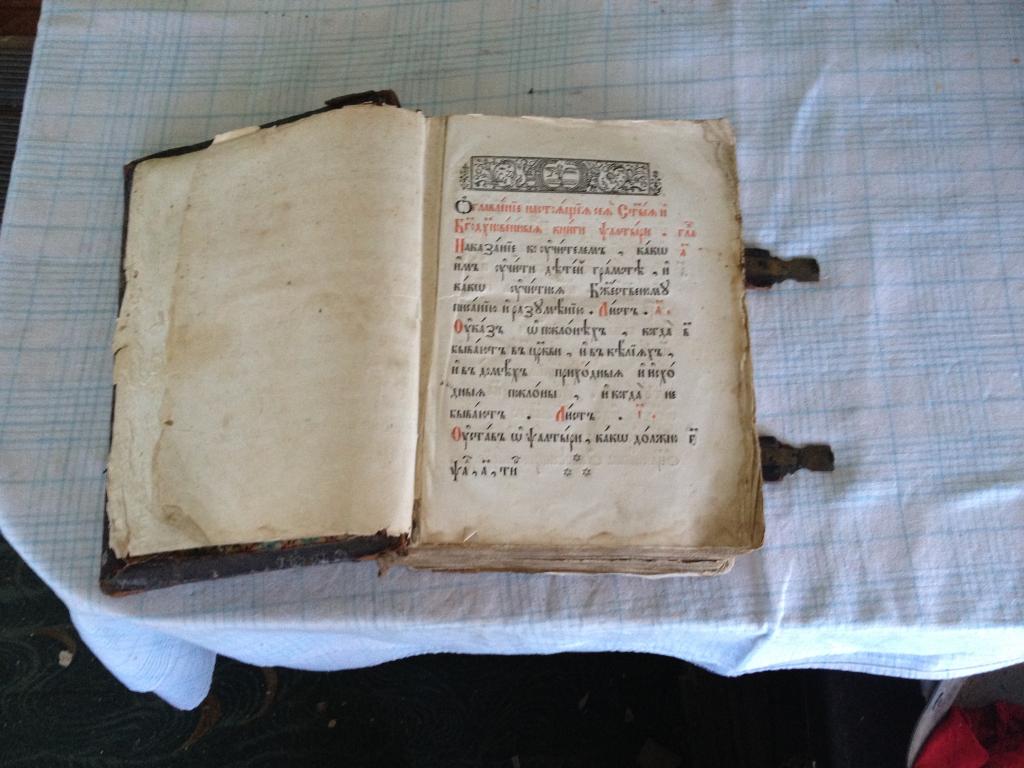 Ѻглавле́нїе настоѧ́щїѧ сеѧ̀ Ст҃ы́ѧ и҆
Бг҃одꙋхнове́нныѧ кни́ги ѱалты́ри . гла
Наказа́нїе ко ᲂу҆чи́телемъ , ка́кѡ а҃
и҆̀мъ ᲂу҆чи́ти дѣте́й гра́мотѣ , и҆
ка́кѡ ᲂу҆чи́тисѧ Бж҃е́ственомꙋ
писа́нїю и҆ разꙋмѣ́нїю . Ли́стъ . а҃ .
Оу҆ка́зъ ѡ҆ покло́нѣхъ , когда̀ в҃
быва́ютъ въ цр҃кви , и҆ въ ке́лїѧхъ ,
и҆ въ домѣ́хъ прихо́дныѧ и҆ и҆схо
дныѧ покло́ны , и҆ когда̀ не
быва́ютъ . Ли́стъ . і҃ .
Оу҆ста́въ ѡ҆ ѱалты́ри , ка́кѡ до́лжно г҃